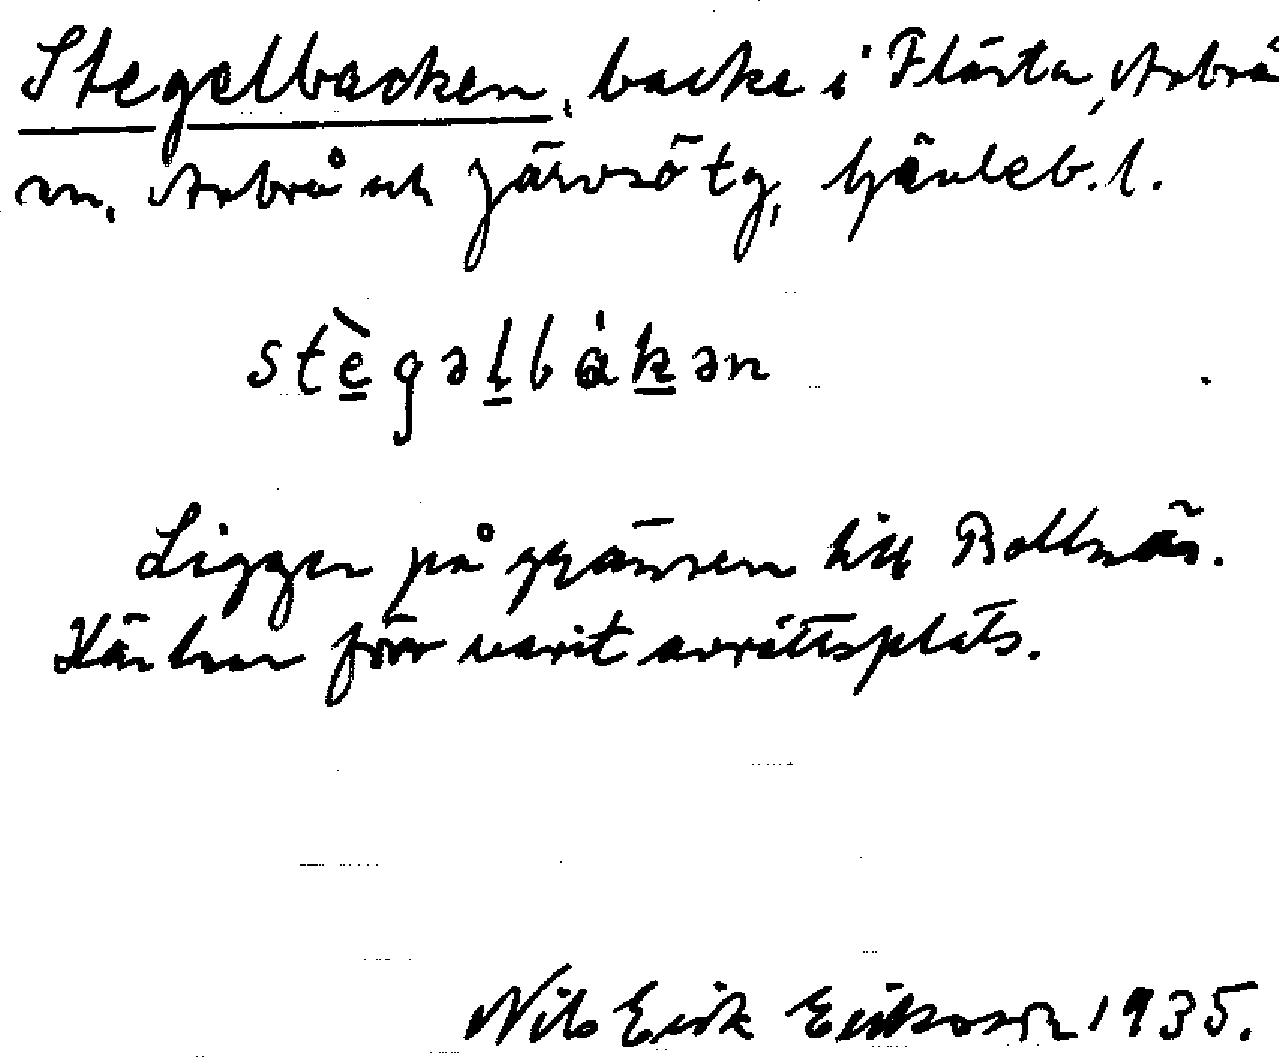 Stegelbacken, backe i Flästa, Arbrå
sn, Arbrå och Järvsö tg, Gävleb. l.
stè̠gəl̠bák̠ən
Ligger på gränsen till Bollnäs.
Här har förr varit avrättsplats.
Nils Erik Eriksson 1935.